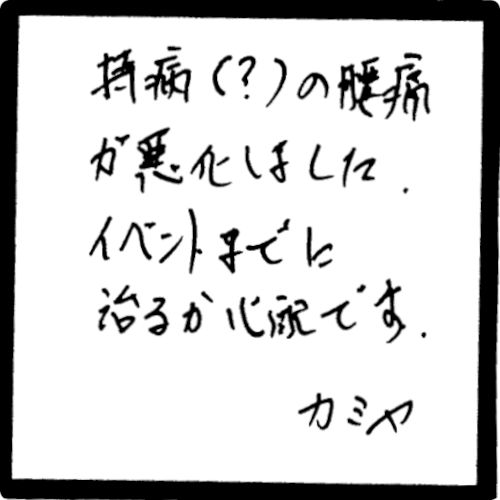 持病(?)の腰痛
が悪化しました.
イベントまでに
治るか心配です.
カミヤ